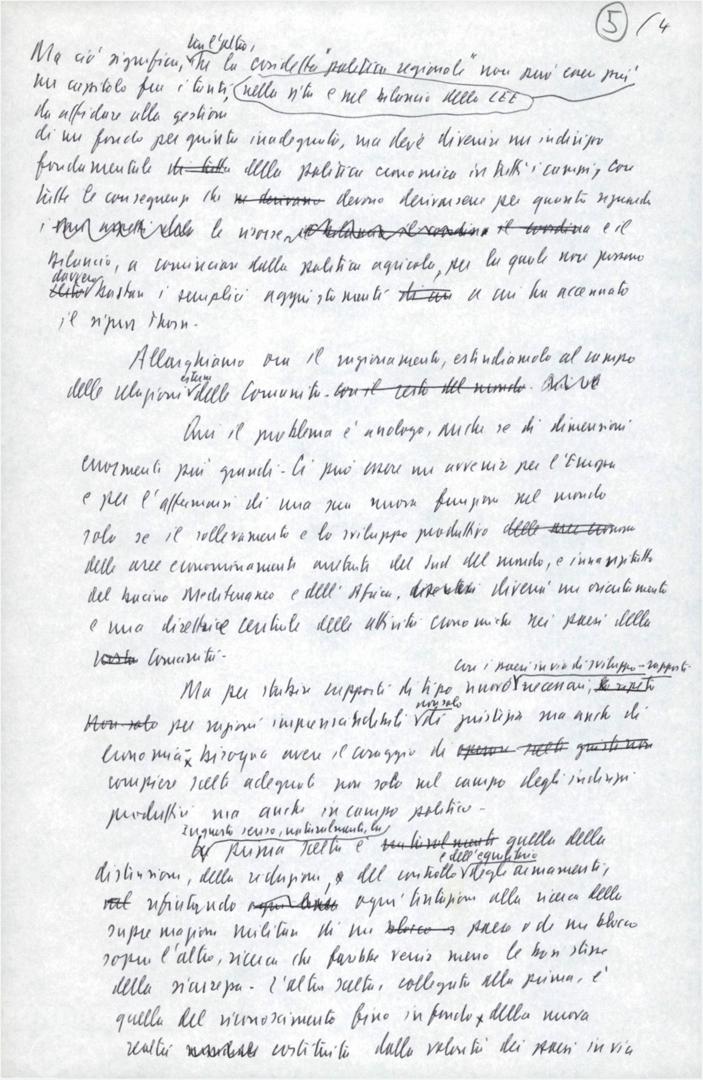 5 / 4
tra l'altro,
Ma ciò significa, che la cosidetta "politica regionale" non può esser più
un capitolo fra i tanti, nella vita e nel bilancio della CEE
da affidare alla gestione
di un fondo per giunta inadeguato, ma deve divenire un indirizzo
fondamentale di tutta della politica economica in tutti i campi, con
tutte le conseguenze che ne derivano devono derivarsene per quanto riguarda
i le risorse, il bilancio il coordina il coordina e il
bilancio, a cominciare dalla politica agricola, per la quale non possono
davvero
certo bastare i semplici aggiustamenti di cui a cui ha accennato
il signor Thorn.
Allarghiamo ora il ragionamento, estendiamolo al campo
esterne
delle relazioni delle Comunità. con il resto del mondo.
Qui il problema è analogo, anche se di dimensioni
enormemente più grandi. Ci può essere un avvenire per l'Europa
e per l'affermarsi di una sua nuova funzione nel mondo
solo se il sollevamento e lo sviluppo produttivo delle aree econom
delle aree economicamente arretrate del Sud del mondo, e innanzitutto
del bacino Mediterraneo e dell'Africa, diverrà un orientamento
e una direttrice centrale delle attività economiche nei paesi della
Comunità.
con i paesi in via di sviluppo - rapporti
Ma per stabilire rapporti di tipo nuovo necessari,
non solo
Non solo per ragioni imprescindibili di giustizia ma anche di
economia - bisogna avere il coraggio di operare scelte giuste non
compiere scelte adeguate non solo nel campo degli indirizzi
produttivi ma anche in campo politico.
In questo senso, naturalmente, la
La prima scelta è naturalmente quella della
e dell'equilibrio
distensione, della riduzione, e del controllo degli armamenti,
nel rifiutando ogni tentazione alla ricerca della
supremazia militare di un blocco o paese o di un blocco
sopra l'altro, ricerca che farebbe venir meno le basi stesse
della sicurezza. L'altra scelta, collegata alla prima, è
quella del riconoscimento fino in fondo della nuova
realtà mondiale costituita dalla volontà dei paesi in via